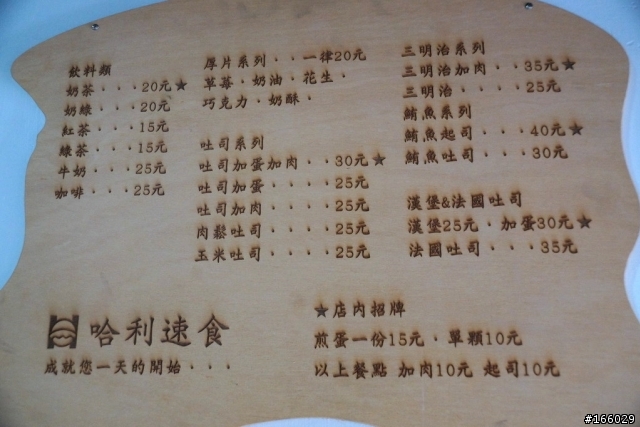 飲料類
奶茶・・・20元★
奶綠・・・20元
紅茶・・・15元
綠茶・・・15元
牛奶・・・25元
咖啡・・・25元
厚片系列・・一律20元
草莓・奶油・花生・
巧克力・奶酥・
吐司系列
吐司加蛋加肉・・30元★
吐司加蛋・・・25元
吐司加肉・・・25元
肉鬆吐司・・・25元
玉米吐司・・・25元
三明治系列
三明治加肉・・35元★
三明治・・・・25元
鮪魚系列
鮪魚起司・・・40元★
鮪魚吐司・・・30元
漢堡&法國吐司
漢堡25元・加蛋30元★
法國吐司・・・35元
哈利速食
成就您一天的開始・・・
★店內招牌
煎蛋一份15元・單顆10元
以上餐點 加肉10元 起司10元
#166029